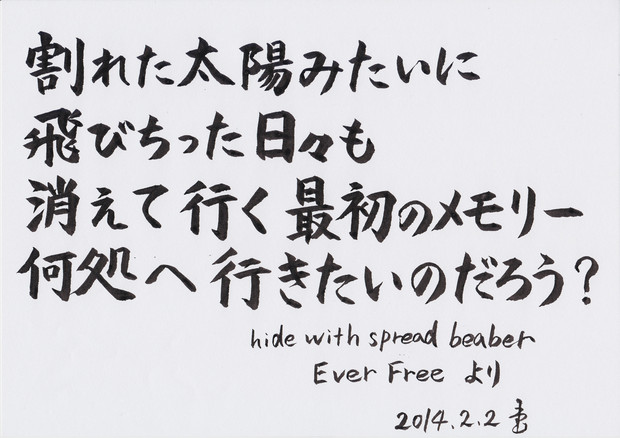 割れた太陽みたいに
飛びちった日々も
消えて行く最初のメモリー
何処へ行きたいのだろう?
hide with spread beaber
Ever Free より
2014.2.2